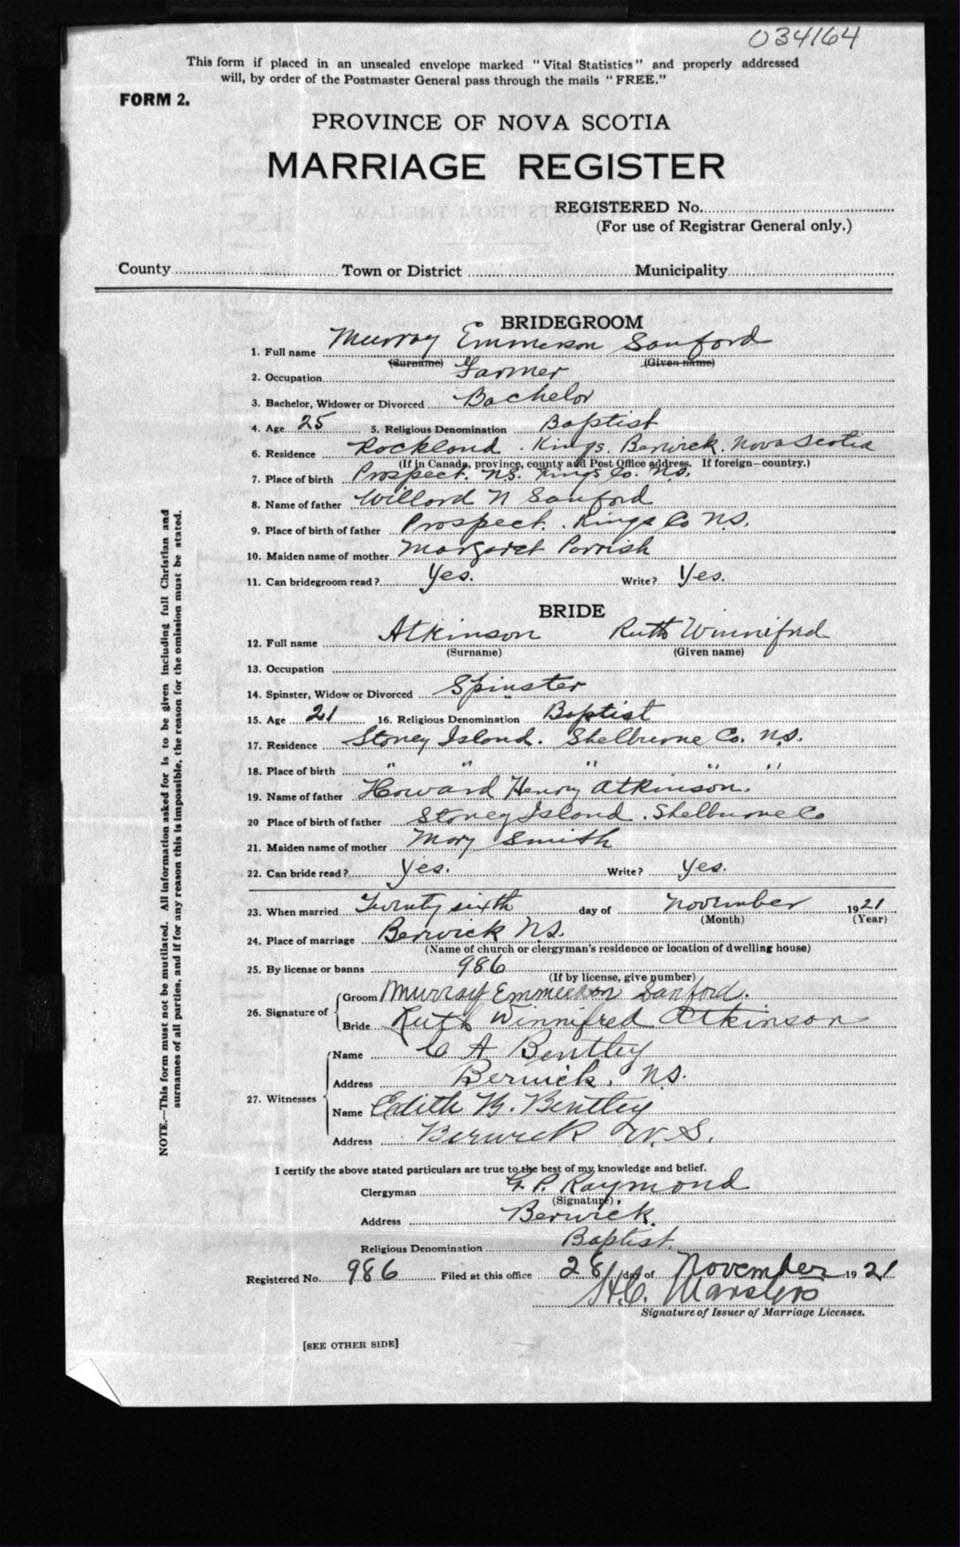 034164
This form if placed in an unsealed envelope marked "Vital Statistics" and properly addressed
will, by order of the Postmaster General pass through the mails "FREE."
FORM 2.
PROVINCE OF NOVA SCOTIA
MARRIAGE REGISTER
REGISTERED No.
(For use of Registrar General only.)
County Town or District Municipality
BRIDEGROOM
1. Full name Murray Emmerson Sanford
(Surname) (Given name)
2. Occupation Farmer
3. Bachelor, Widower or Divorced Bachelor
4. Age 25 5. Religious Denomination Baptist
6. Residence Rockland. Kings. Berwick. Nova Scotia
(If in Canada, province, county and Post Office address. If foreign—country.)
7. Place of birth Prospect. N.S. Kings Co. N.S.
8. Name of father Willard N Sanford
9. Place of birth of father Prospect. Kings Co N.S.
10. Maiden name of mother Margaret Parrish
11. Can bridegroom read? Yes. Write? Yes.
BRIDE
12. Full name Atkinson Ruth Winnifred
(Surname) (Given name)
13. Occupation
14. Spinster, Widow or Divorced Spinster
15. Age 21 16. Religious Denomination Baptist
17. Residence Stoney Island. Shelburne Co. N.S.
18. Place of birth " " " " "
19. Name of father Howard Henry Atkinson.
20 Place of birth of father Stoney Island. Shelburne Co
21. Maiden name of mother Mary Smith
22. Can bride read? Yes. Write? Yes.
23. When married Twenty sixth day of November 1921
(Month) (Year)
24. Place of marriage Berwick N.S.
(Name of church or clergyman's residence or location of dwelling house)
25. By license or banns 986
(If by license, give number)
26. Signature of Groom Murray Emmerson Sanford.
Bride Ruth Winnifred Atkinson
27. Witnesses
Name C A Bentley
Address Berwick, N.S.
Name Edith M. Bentley
Address Berwick N.S.
I certify the above stated particulars are true to the best of my knowledge and belief.
Clergyman G. P. Raymond
(Signature)
Address Berwick.
Religious Denomination Baptist.
Registered No. 986 Filed at this office 28 day of November 1921
H.C. 
Signature of Issuer of Marriage Licenses.
[SEE OTHER SIDE]
NOTE.—This form must not be mutilated. All information asked for is to be given including full Christian and
surnames of all parties, and if for any reason this is impossible, the reason for the omission must be stated.